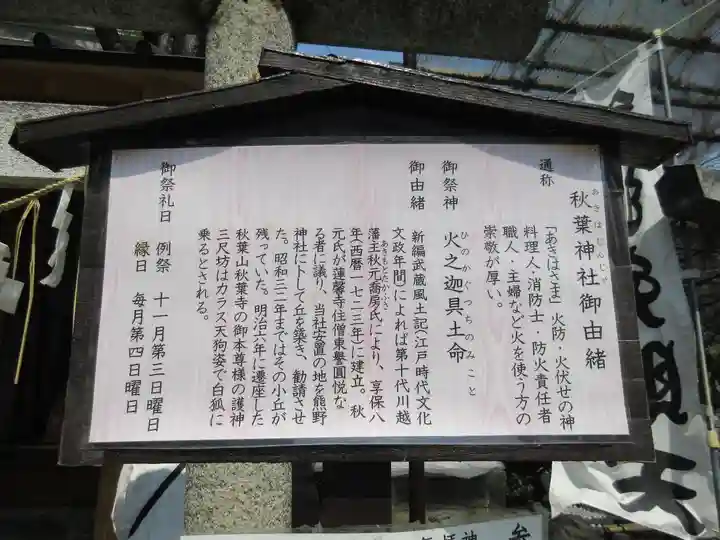 秋葉神社御由緒
あきはじんじゃ
通称
「あきはさま」火防・火伏せの神
料理人・消防士・防火責任者
職人・主婦など火を使う方の
崇敬が厚い。
御祭神 火之迦具土命
ひのかぐつちのみこと
御由緒
新編武蔵風土記(江戸時代文化
文政年間)によれば第十代川越
藩主秋元喬房氏により、享保八
あきもとたかふさ
年(西暦一七二三年)に建立。秋
元氏が蓮馨寺住僧東誉圓悦な
る者に議り、当社安置の地を熊野
神社に卜して丘を築き、勧請させ
た。昭和三二年まではその小丘が
残っていた。明治六年に遷座した
秋葉山秋葉寺の御本尊様の護神
三尺坊はカラス天狗姿で白狐に
乗るとされる。
御祭礼日 例祭 十一月第三日曜日
縁日 毎月第四日曜日